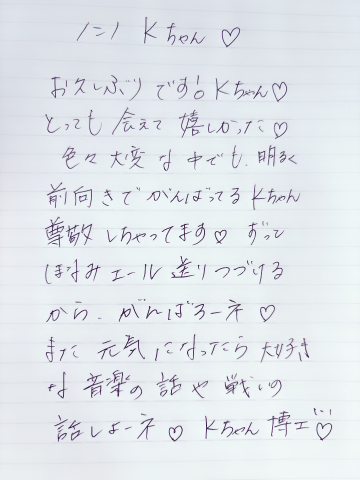 Kちゃん♡
お久しぶりです! Kちゃん♡
とっても 会えて 嬉しかった♡
色々 大変な 中でも、明るく
前向きで がんばってる Kちゃん
尊敬 しちゃってます♡ ずっと
ほなみエール 送りつづける
から、がんばろーネ ♡
また 元気になったら 大好き
な 音楽の 話や 戦いの
話しよーネ ♡ Kちゃん 博士♡